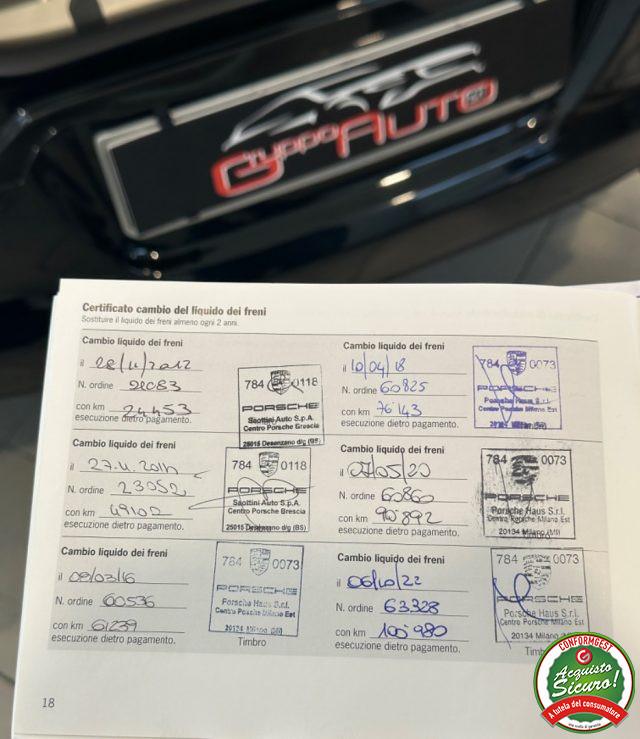 Gruppo AUTO
Certificato cambio del liquido dei freni
Sostituire il liquido dei freni almeno ogni 2 anni.
Cambio liquido dei freni
il 28/11/2012
N. ordine
con km 24453
esecuzione dietro pagamento.
784 0118
PORSCHE
Saottini Auto S.p.A.
Centro Porsche Brescia
25015 Desenzano d/g (BS)
Cambio liquido dei freni
il
N. ordine 23052
con km 49102
esecuzione dietro pagamento.
784 0118
PORSCHE
Saottini Auto S.p.A.
Centro Porsche Brescia
25015 Desenzano d/g (BS)
Cambio liquido dei freni
il 09/03/16
N. ordine 60536
con km 61239
esecuzione dietro pagamento.
784 0073
PORSCHE
Porsche Haus S.r.l.
Centro Porsche Milano Est
20134 Milano (MI)
Timbro
Cambio liquido dei freni
il 10/04/18
N. ordine 60825
con km 76143
esecuzione dietro pagamento.
784 0073
PORSCHE
Porsche Haus S.r.l.
Centro Porsche Milano Est
20134 Milano (MI)
Cambio liquido dei freni
il 07/05/20
N. ordine 60860
con km 90892
esecuzione dietro pagamento.
784 0073
PORSCHE
Porsche Haus S.r.l.
Centro Porsche Milano Est
20134 Milano (MI)
Cambio liquido dei freni
il 06/10/22
N. ordine 63328
con km 100980
esecuzione dietro pagamento.
784 0073
PORSCHE
Porsche Haus S.r.l.
Centro Porsche Milano Est
20134 Milano (MI)
18
CONFORMGEST
Acquisto
Sicuro!
A tutela del consumatore